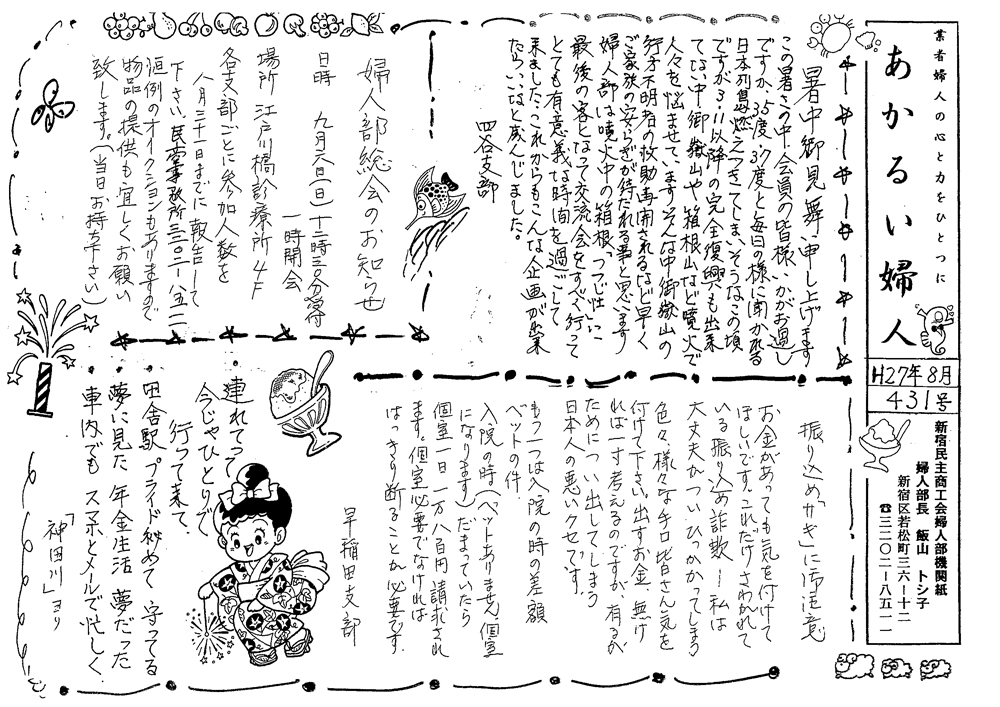 業者婦人の心と力をひとつに
あかるい婦人
H27年8月
431号
新宿民主商工会婦人部機関紙
婦人部長 飯山 トシ子
新宿区若松町三六ー十二
☎三二〇二ー八五一一
暑中御見舞い申し上げます
この暑さの中、会員の皆様、いかがお過し
ですか、35度、37度と毎日の様に聞かれる
日本列島燃えつきてしまいそうなこの頃
ですが、3.11以降の完全復興も出来
てない中、御嶽山や箱根山など噴火で
人々を悩ませています。そんな中御嶽山の
行方不明者の救助再開されるなど早く
ご家族の安らぎが待たれる事と思います
婦人部は噴火中の箱根、つつじ荘に
最後の客となって交流会をすべて行って
とても有意義な時間を過ごして
来ました。これからもこんな企画が出来
たらいいなと感んじました。
四谷支部
婦人部総会のお知らせ
日時 九月六日(日)十二時三〇分受付
一時開会
場所 江戸川橋診療所4F
各支部ごとに参加人数を
八月三十一日までに報告して
下さい。民商事務所三二〇二ー八五一一
恒例のオークションもありますので
物品の提供も宜しくお願い
致します。(当日お持ち下さい)
振り込め「さぎ」に御注意
お金があっても気を付けて
ほしいです。これだけさわかれて
いる振り込め詐欺ー 私は
大丈夫かついひっかかってしまう
色々、様々な手口皆さん気を
付けて下さい。出すお金、無け
れば一寸考えるのですが、有るが
ためについ出してしまう
日本人の悪いクセです。
もう一つは入院の時の差額
ベットの件。
入院の時(ベットありません、個室
になります)だまっていたら
個室一日一万八百円請求され
ます。個室必要でなければ
はっきり断ることが必要です。
早稲田支部
・連れてって
今じゃひとりで
行って来て
・田舎駅 プライド秘めて 守ってる
・夢に見た 年金生活 夢だった
・車内でも スマホとメールで忙しく
「神田川」ヨリ